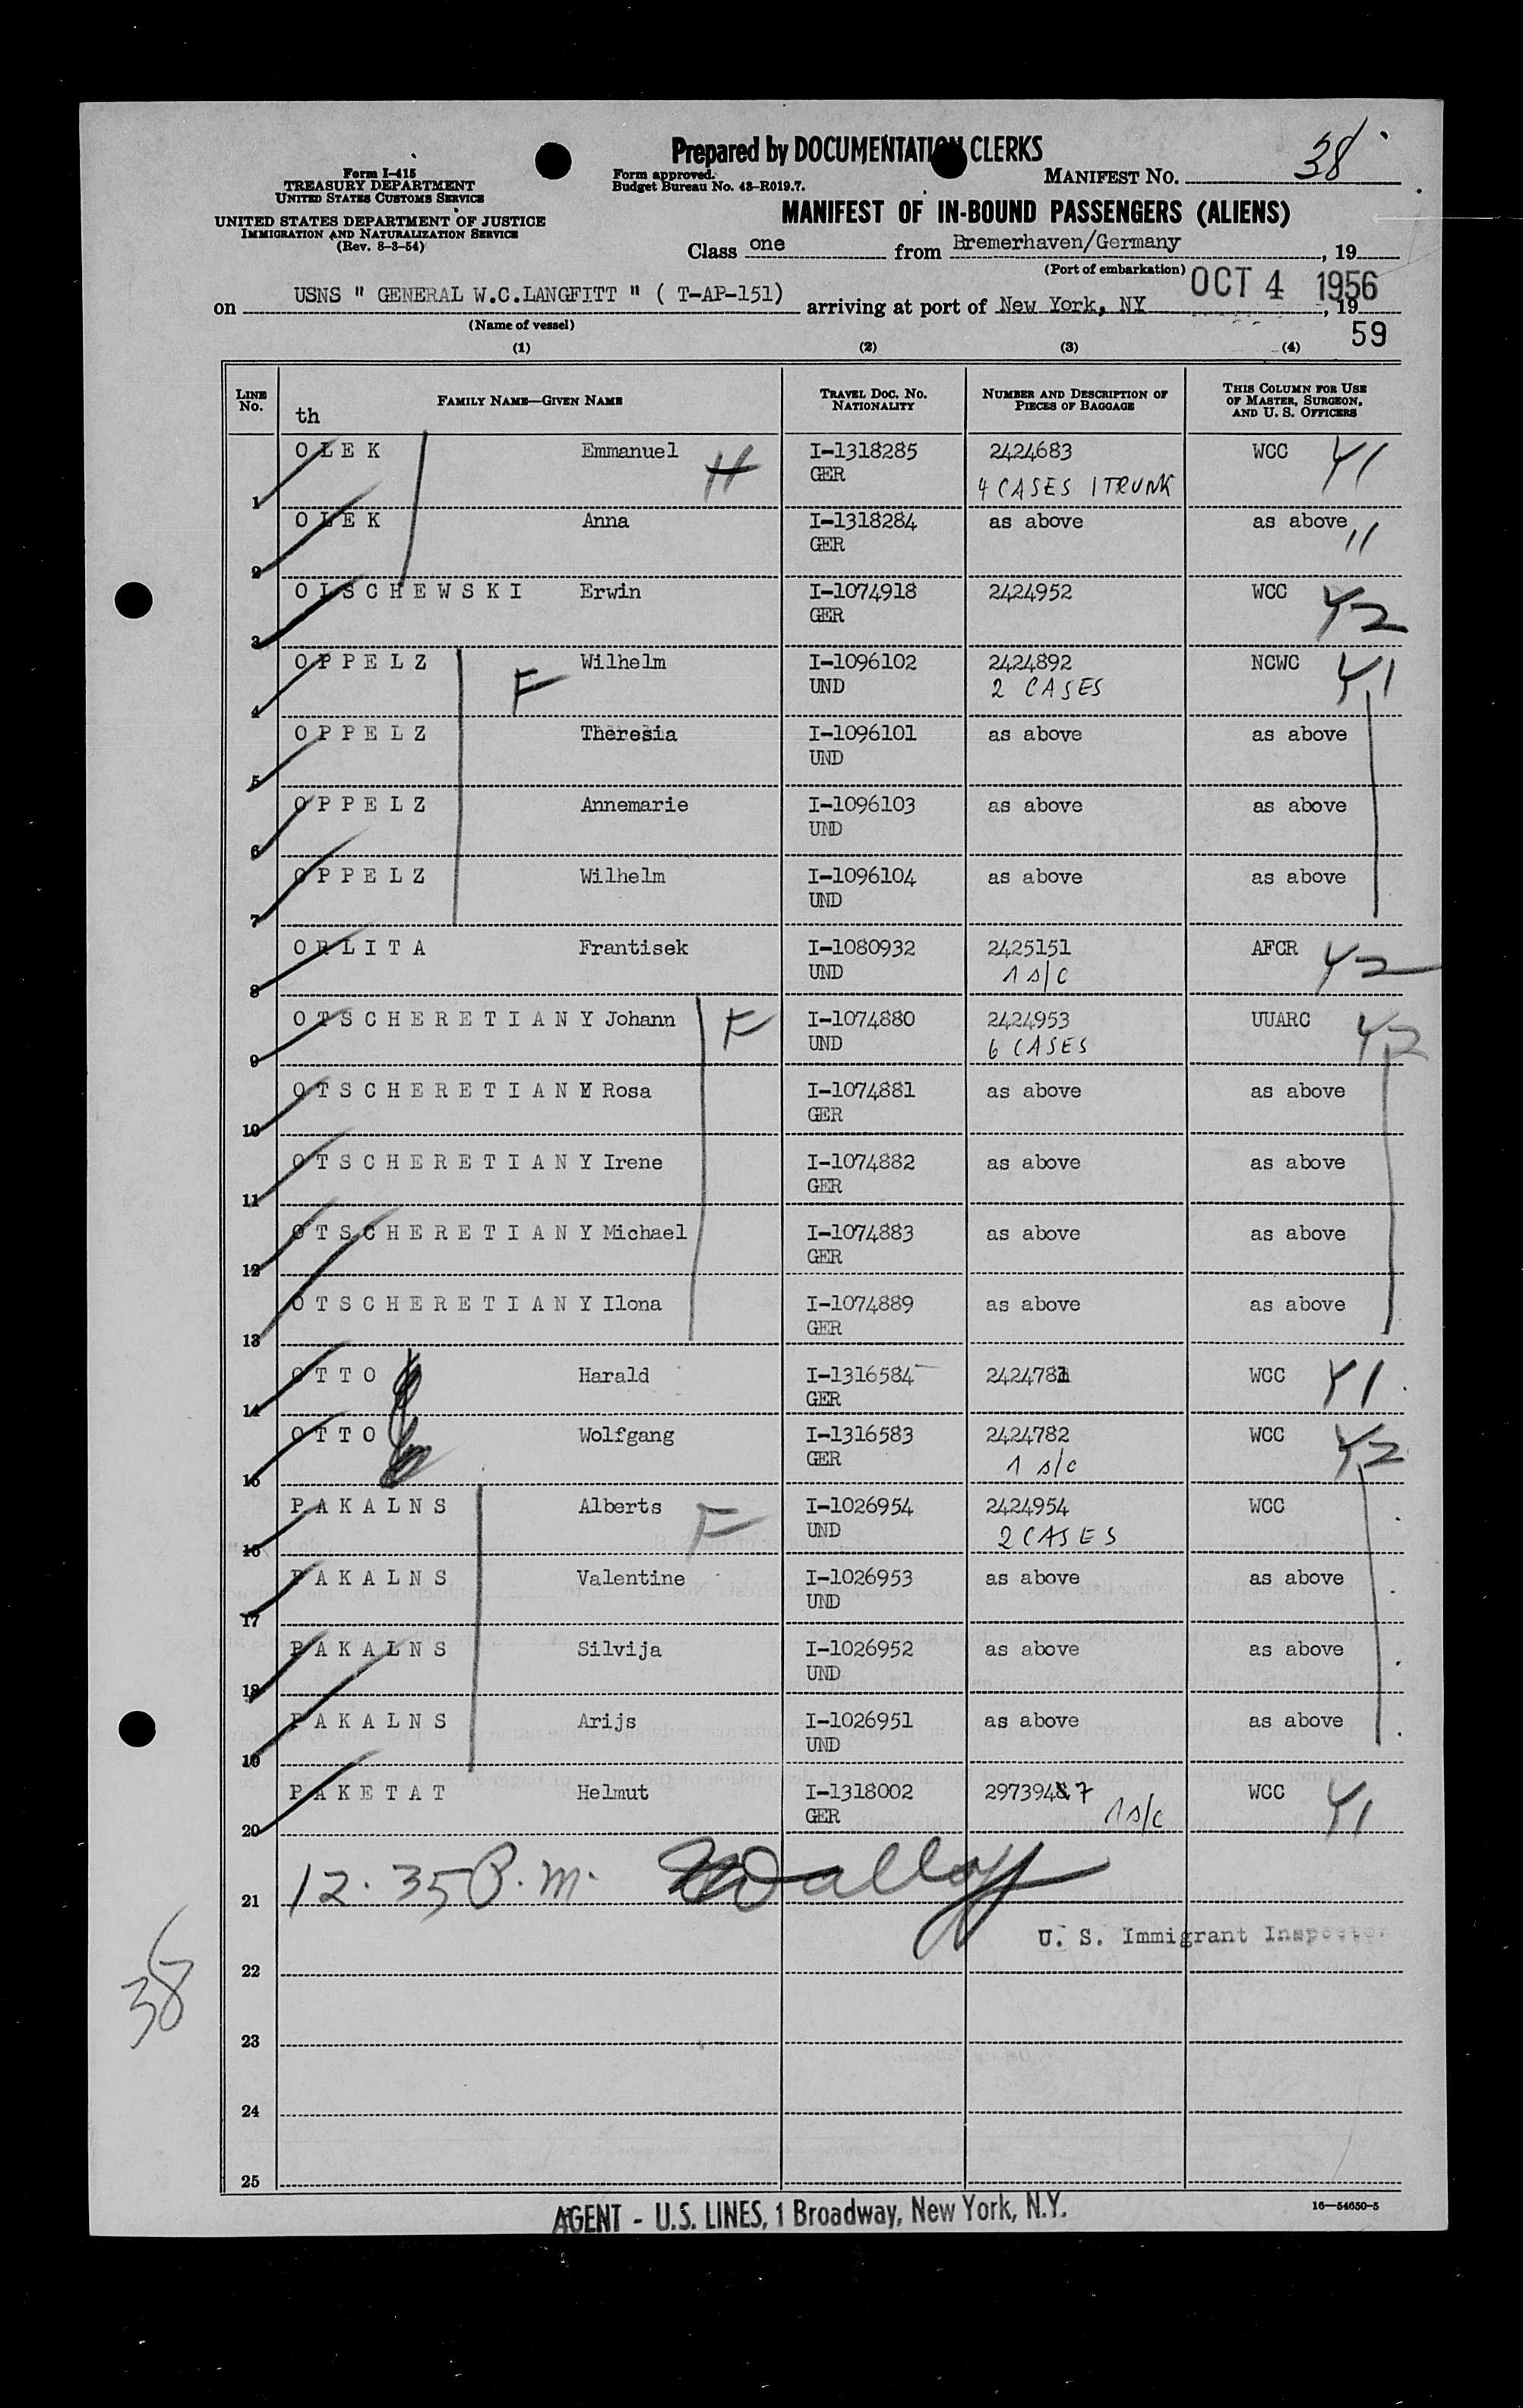 Prepared by DOCUMENTATION CLERKS
38
Form I-415
TREASURY DEPARTMENT
UNITED STATES CUSTOMS SERVICE
UNITED STATES DEPARTMENT OF JUSTICE
IMMIGRATION AND NATURALIZATION SERVICE
(Rev. 8-3-54)
Form approved.
Budget Bureau No. 43-R019.7.
MANIFEST NO.
MANIFEST OF IN-BOUND PASSENGERS (ALIENS)
Class one from Bremerhaven/Germany, 19
(Port of embarkation)
OCT 4 1956
on USNS " GENERAL W.C.LANGFITT " ( T-AP-151) arriving at port of New York, NY, 19
(Name of vessel)
59
(1) (2) (3) (4)
LINE NO. FAMILY NAME—GIVEN NAME TRAVEL DOC. NO. NATIONALITY NUMBER AND DESCRIPTION OF PIECES OF BAGGAGE THIS COLUMN FOR USE OF MASTER, SURGEON, AND U. S. OFFICERS
th
OLEK Emmanuel H I-1318285 2424683 WCC 41
1 GER 4 CASES 1 TRUNK
OLEK Anna I-1318284 as above as above "
2 GER
OLSCHEWSKI Erwin I-1074918 2424952 WCC 42
3 GER
OPPELZ F Wilhelm I-1096102 2424892 NCWC 41
4 UND 2 CASES
OPPELZ Theresia I-1096101 as above as above
5 UND
OPPELZ Annemarie I-1096103 as above as above
6 UND
OPPELZ Wilhelm I-1096104 as above as above
7 UND
ORLITA Frantisek I-1080932 2425151 AFCR 42
8 UND 1 s/c
OTSCHERETIANY Johann F I-1074880 2424953 UUARC 42
9 UND 6 CASES
OTSCHERETIANY Rosa I-1074881 as above as above
10 GER
OTSCHERETIANY Irene I-1074882 as above as above
11 GER
OTSCHERETIANY Michael I-1074883 as above as above
12 GER
OTSCHERETIANY Ilona I-1074889 as above as above
13 GER
OTTO Harald I-1316584 2424781 WCC 41
14 GER
OTTO Wolfgang I-1316583 2424782 WCC 42
15 GER 1 s/c
PAKALNS Alberts F I-1026954 2424954 WCC
16 UND 2 CASES
PAKALNS Valentine I-1026953 as above as above
17 UND
PAKALNS Silvija I-1026952 as above as above
18 UND
PAKALNS Arijs I-1026951 as above as above
19 UND
PAKETAT Helmut I-1318002 2973947 WCC 41
20 GER 1 s/c
12.35 P.m.
21
U. S. Immigrant Inspector
22
38
23
24
25
AGENT - U.S. LINES, 1 Broadway, New York, N.Y.
16—54650-5